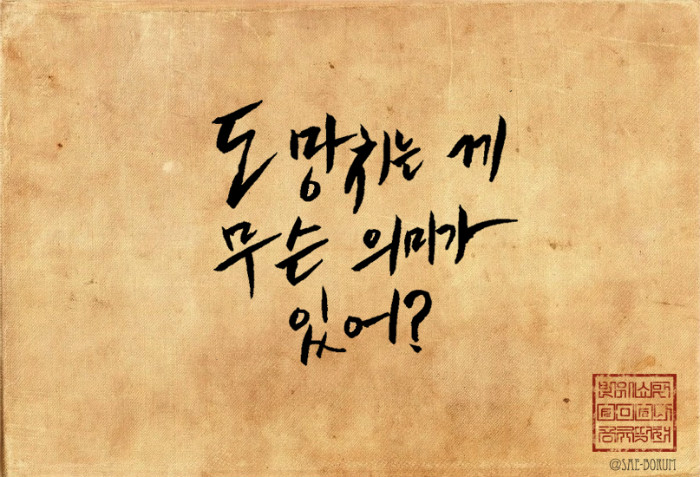 도망치는 게
무슨 의미가
있어?
@SAE-BORUM